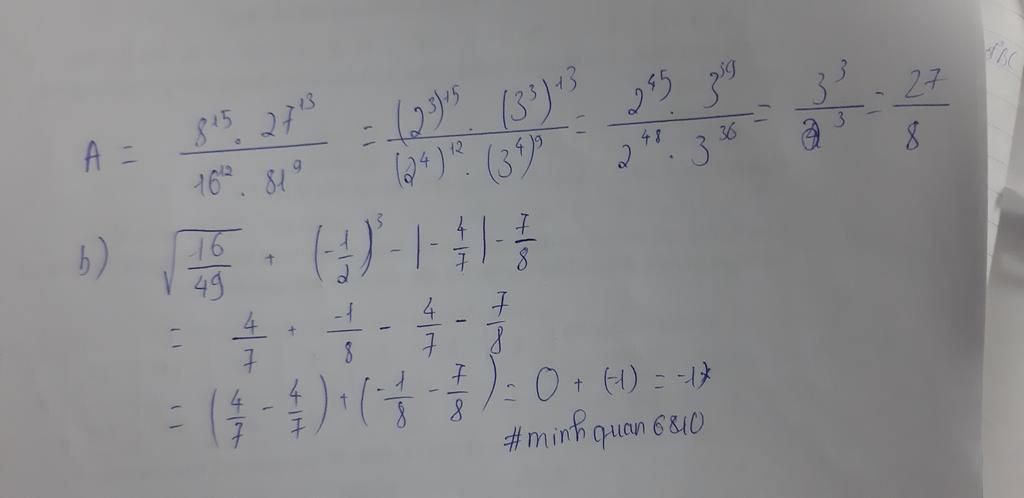 A = \frac{8^{15} . 27^{13}}{16^{12} . 81^{9}} = \frac{(2^3)^{15} . (3^3)^{13}}{(2^4)^{12} . (3^4)^9} = \frac{2^{45} . 3^{39}}{2^{48} . 3^{36}} = \frac{3^3}{2^3} = \frac{27}{8}
b) \sqrt{\frac{16}{49}} + (-\frac{1}{2})^3 - |-\frac{4}{7}| - \frac{7}{8}
= \frac{4}{7} + \frac{-1}{8} - \frac{4}{7} - \frac{7}{8}
= (\frac{4}{7} - \frac{4}{7}) + (-\frac{1}{8} - \frac{7}{8}) = 0 + (-1) = -1
#minhquan6810